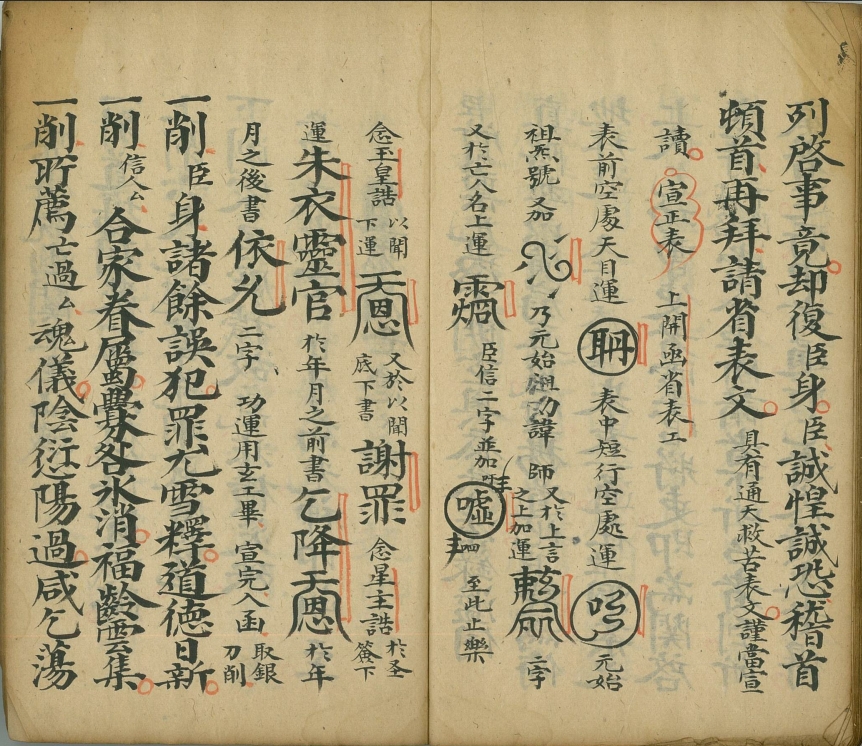 列啓事竟却復臣身臣誠惶誠恐稽首
頓首再拜請省表文 具有通天救苦表文謹當宣
讀 宣正表 上開函省表工
表前空處天目運 表中短行空處運 元始
祖炁號又加 乃元始祖劫諱 師 又於上言之上加運 二字
又於亡人名上運 臣信二字並加 噓 至此止樂
念玉皇誥 以聞下運 又於以聞底下書 謝罪 念星主誥 於圣簽下
運 朱衣靈官 於年月之前書 乞降天恩 於年
月之後書 依允 二字 功運用玄工畢 宣完入函 取銀刀削
一削 臣身諸餘誤犯罪尤雪釋道德日新
一削 信人厶 合家眷屬釁咎氷消福齡雲集
一削 所薦亡過厶魂儀陰愆陽過咸乞蕩